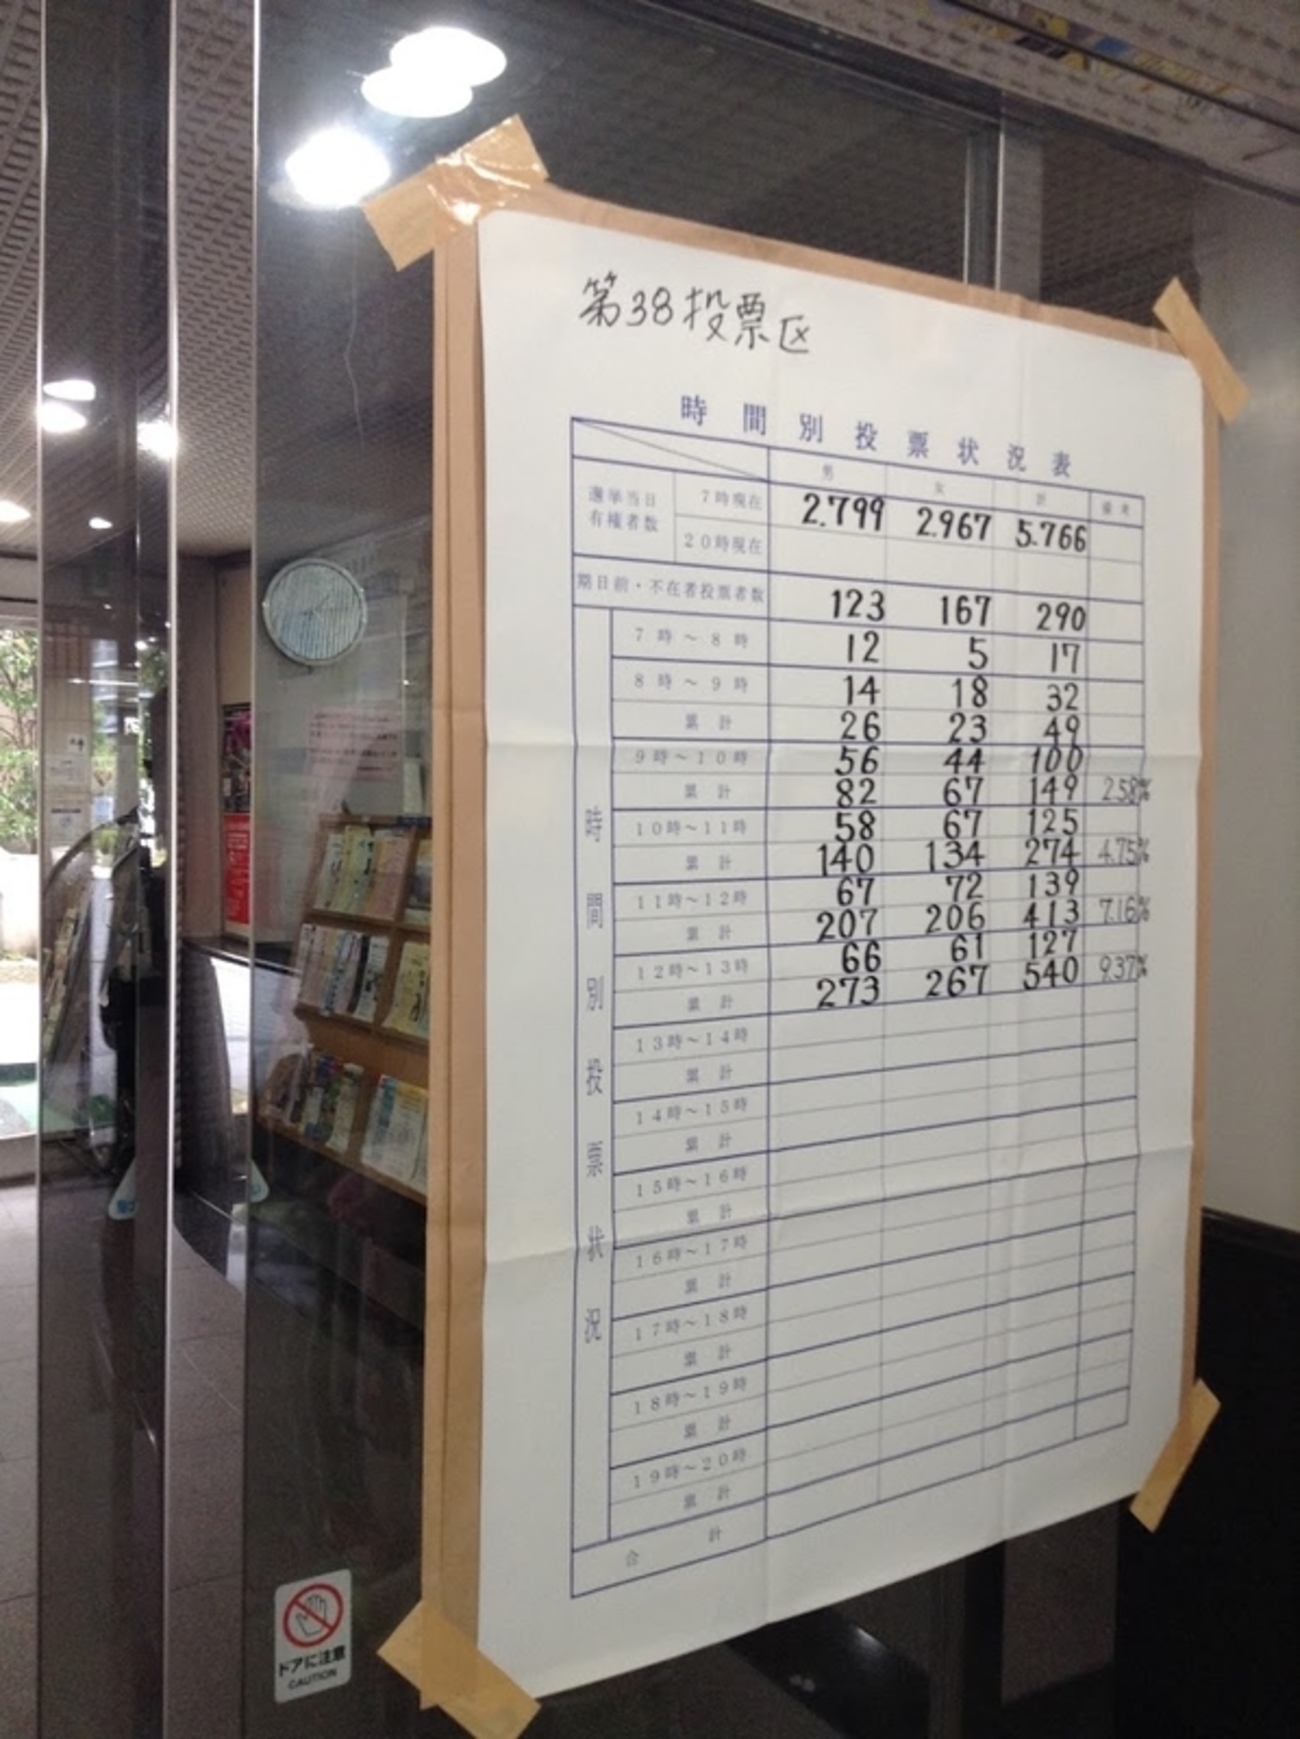 第38投票区
時間別投票状況表
男 女 計 備考
選挙当日有権者数 7時現在 2.799 2.967 5.766
20時現在
期日前・不在者投票者数 123 167 290
時間別投票状況
7時～8時 12 5 17
8時～9時 14 18 32
累計 26 23 49
9時～10時 56 44 100
累計 82 67 149 2.58%
10時～11時 58 67 125
累計 140 134 274 4.75%
11時～12時 67 72 139
累計 207 206 413 7.16%
12時～13時 66 61 127
累計 273 267 540 9.37%
13時～14時
累計
14時～15時
累計
15時～16時
累計
16時～17時
累計
17時～18時
累計
18時～19時
累計
19時～20時
累計
合計
ドアに注意
CAUTION